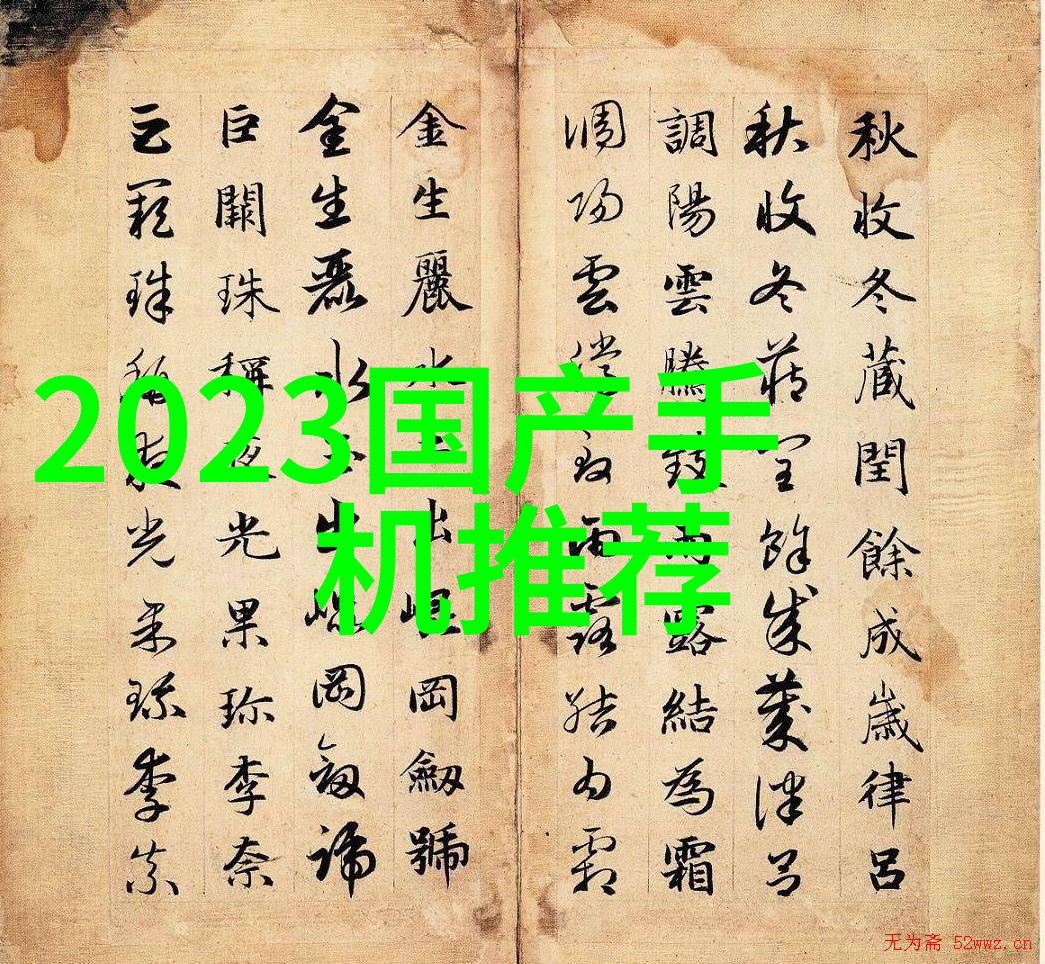 秋收冬藏閏餘成歲律呂
秋收冬藏閏餘成歲律呂
調陽雲騰致雨露結為霜
調陽雲騰致雨露結為霜
金生麗水玉出崐岡劔號
金生麗水玉出崐岡劔號
巨闕珠稱夜光果珎李柰
巨闕珠稱夜光果珎李柰
2023国产手
机推荐
无为斋 52wwz.cn